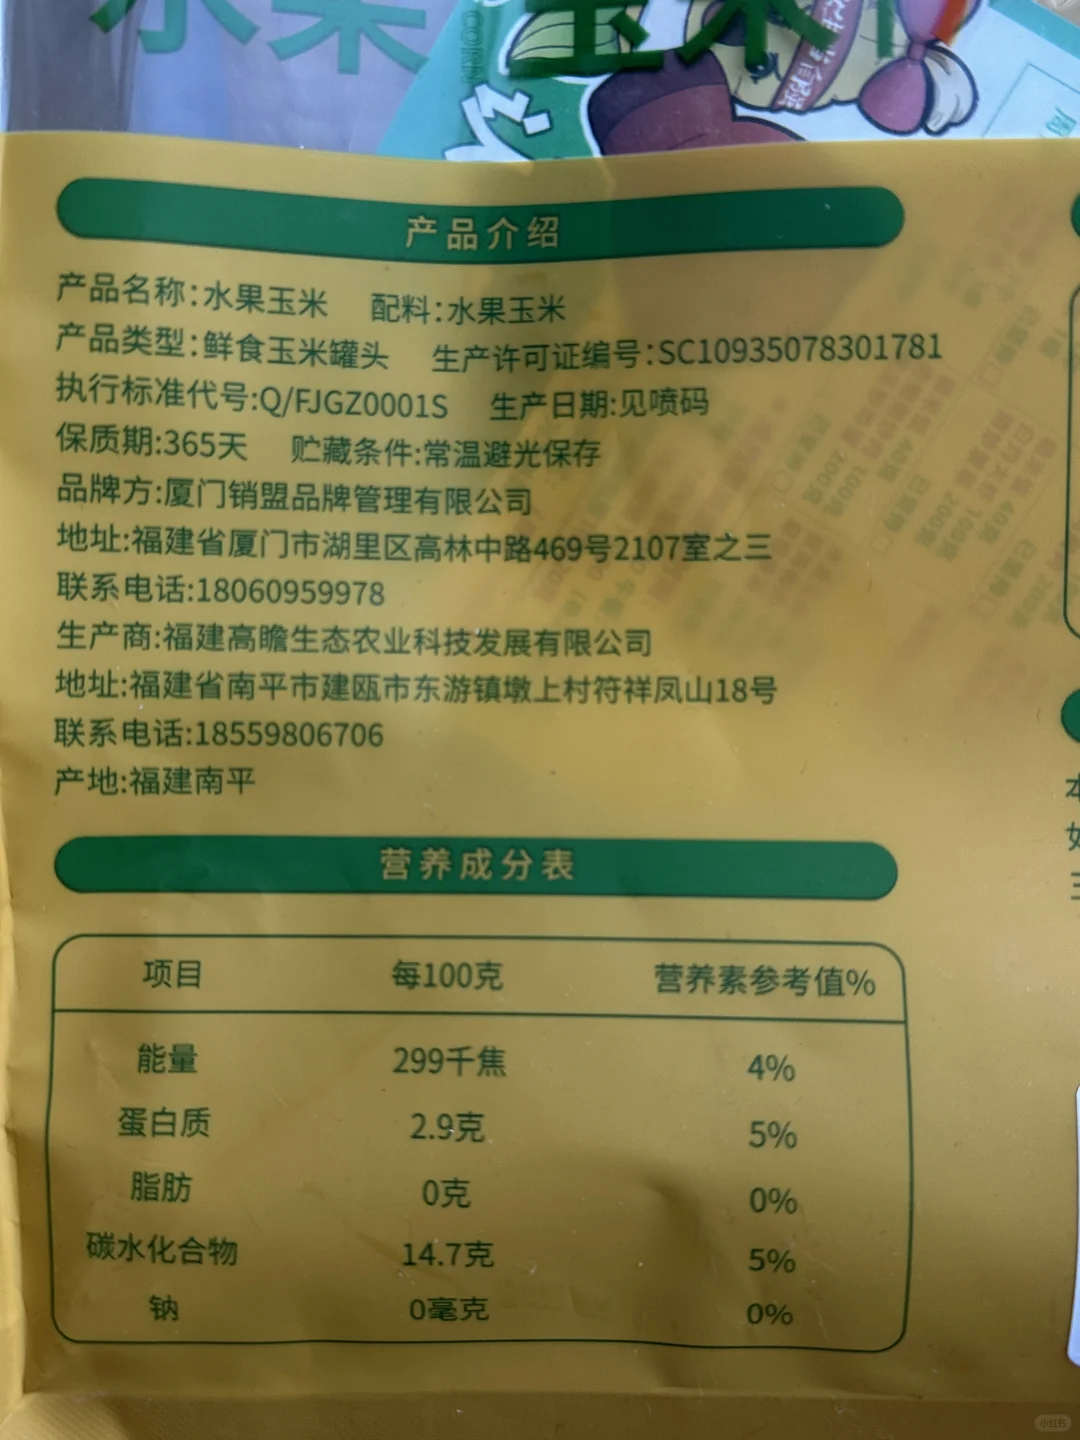 水果 玉米
CORN
产品介绍
产品名称:水果玉米 配料:水果玉米
产品类型:鲜食玉米罐头 生产许可证编号:SC10935078301781
执行标准代号:Q/FJGZ0001S 生产日期:见喷码
保质期:365天 贮藏条件:常温避光保存
品牌方:厦门销盟品牌管理有限公司
地址:福建省厦门市湖里区高林中路469号2107室之三
联系电话:18060959978
生产商:福建高瞻生态农业科技发展有限公司
地址:福建省南平市建瓯市东游镇墩上村符祥凤山18号
联系电话:18559806706
产地:福建南平
营养成分表
项目 每100克 营养素参考值%
能量 299千焦 4%
蛋白质 2.9克 5%
脂肪 0克 0%
碳水化合物 14.7克 5%
钠 0毫克 0%